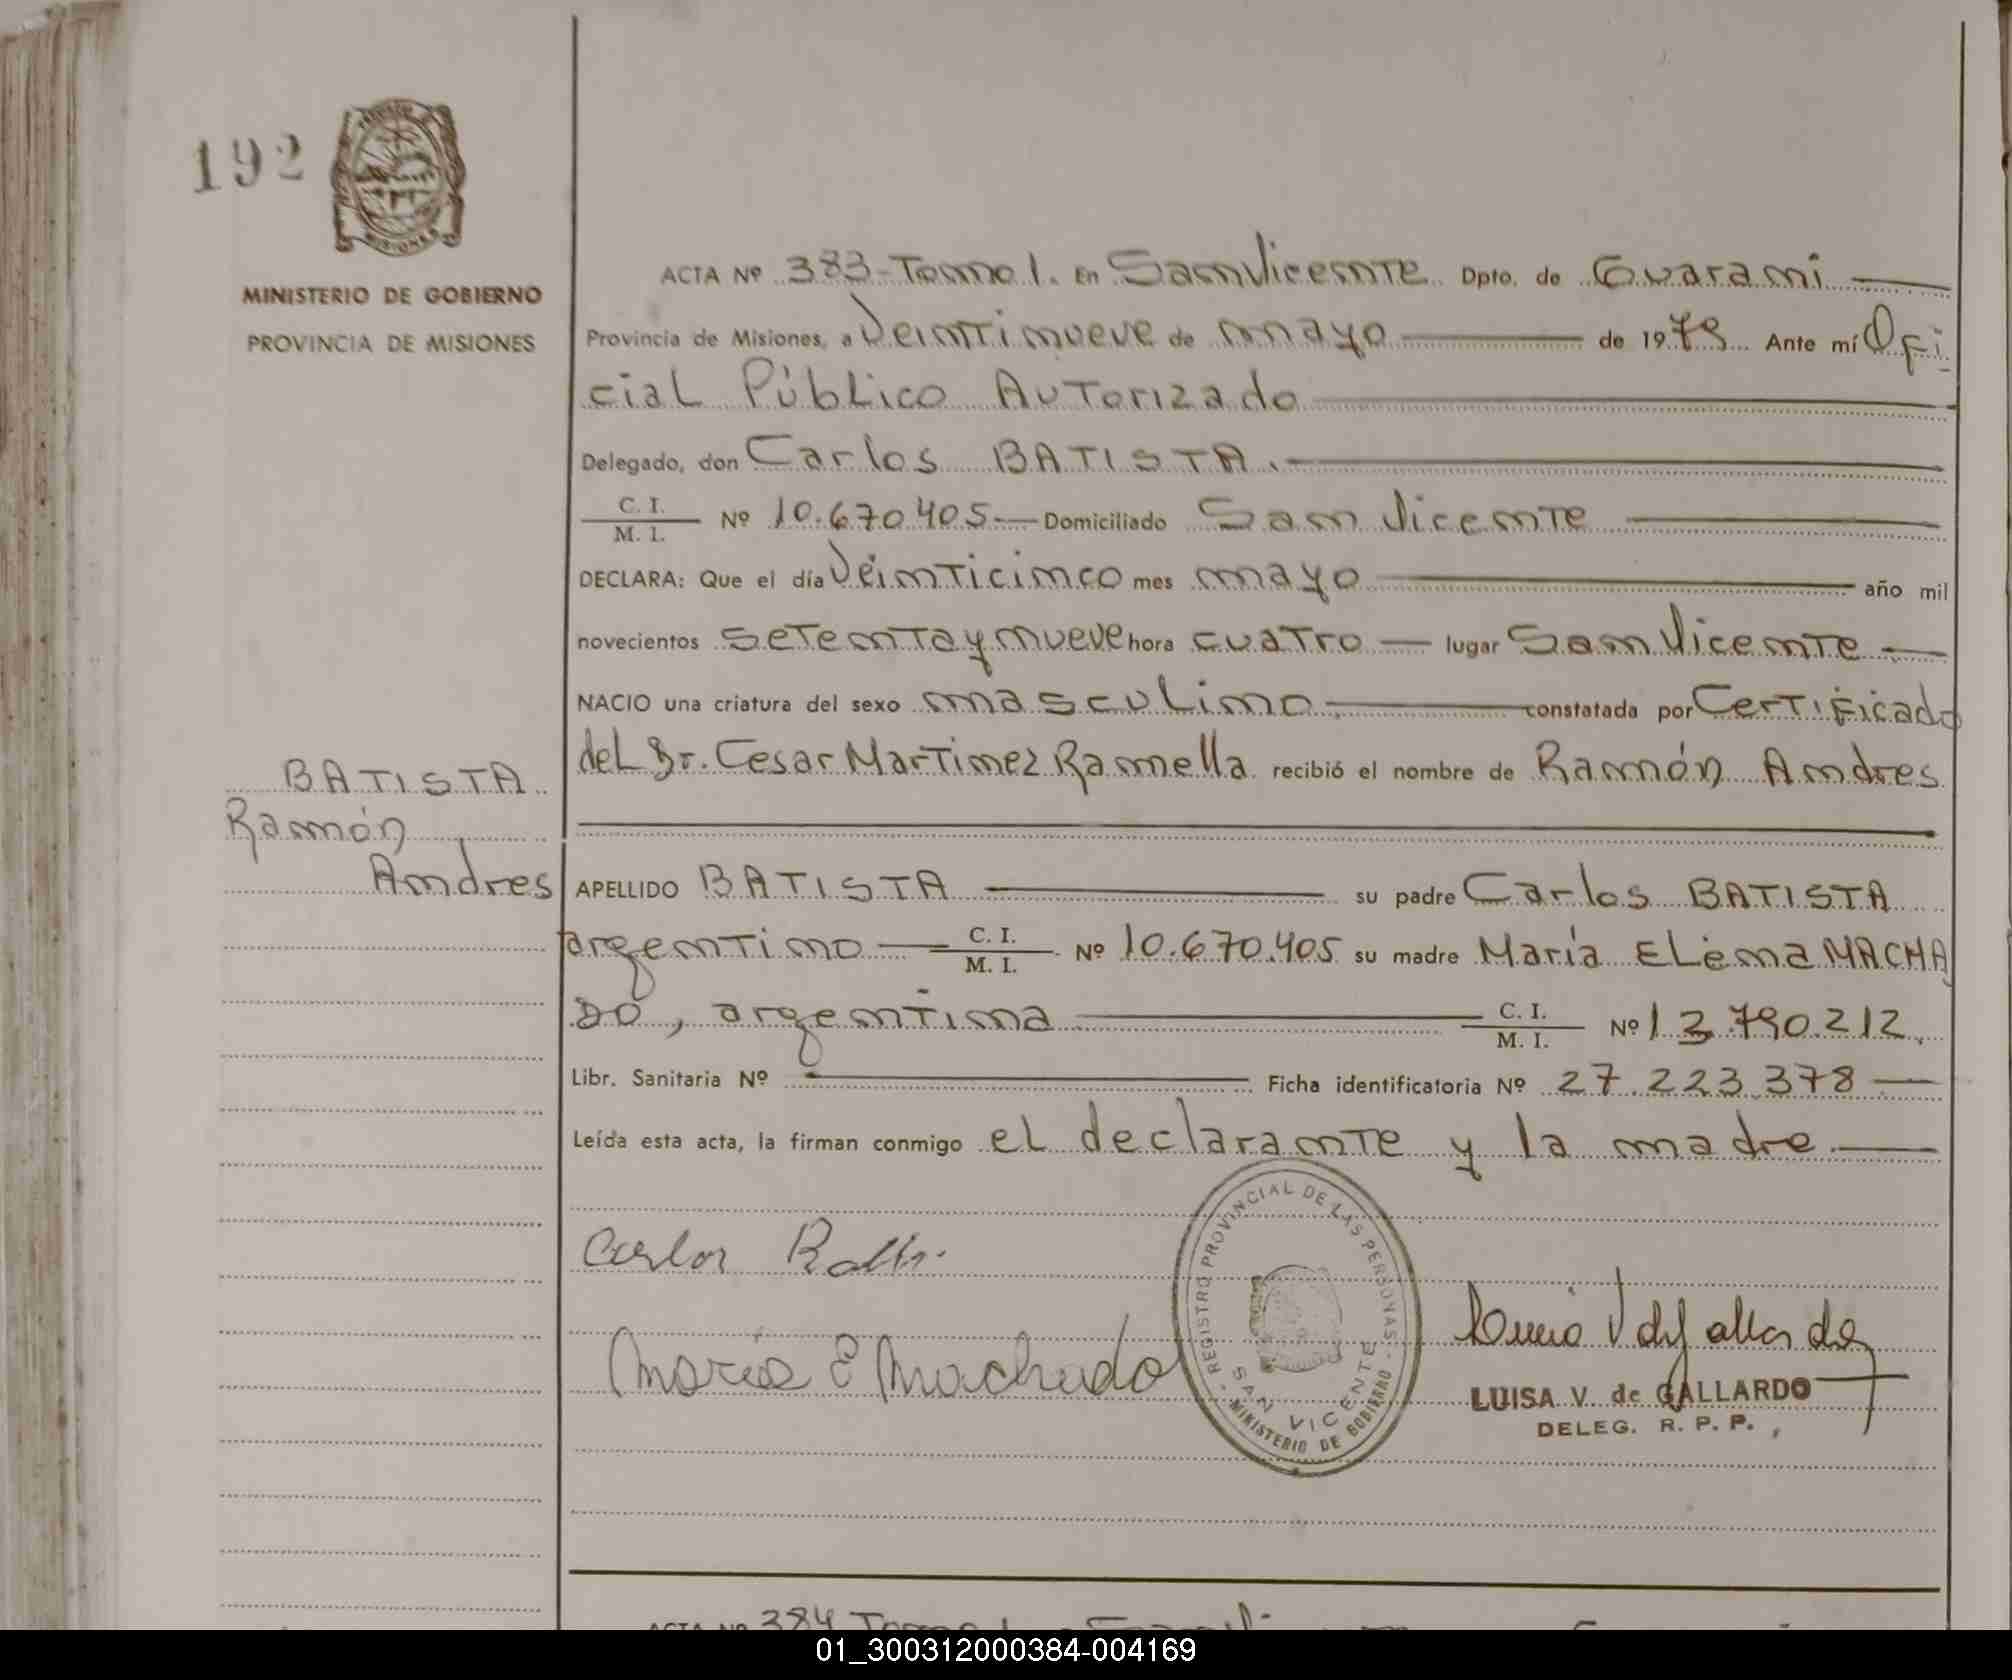 192
MISIONES
MINISTERIO DE GOBIERNO
PROVINCIA DE MISIONES
ACTA Nº 383-Tomo I. En San Vicente Dpto. de Guarani
Provincia de Misiones, a Veintinueve de mayo de 1979 Ante mí Ofi
cial Público Autorizado
Delegado, don Carlos BATISTA.
C. I.
M. I. Nº 10.670405 Domiciliado San Vicente
DECLARA: Que el día Veinticinco mes mayo año mil
novecientos setenta y nueve hora cuatro lugar San Vicente
NACIO una criatura del sexo masculino constatada por Certificado
del Dr. Cesar Martinez Ramella recibió el nombre de Ramón Andres
BATISTA
Ramón
Andres
APELLIDO BATISTA su padre Carlos BATISTA
argentino C. I.
M. I. Nº 10.670.405 su madre María Elena MACHA
DO, argentina C. I.
M. I. Nº 13.790.212.
Libr. Sanitaria Nº Ficha identificatoria Nº 27.223.378
Leída esta acta, la firman conmigo el declarante y la madre
Carlos
Maria E Machado
REGISTRO PROVINCIAL DE LAS PERSONAS
SAN VICENTE
MINISTERIO DE GOBIERNO
LUISA V. de GALLARDO
DELEG. R. P. P.
ACTA Nº 384 Tomo
01_300312000384-004169